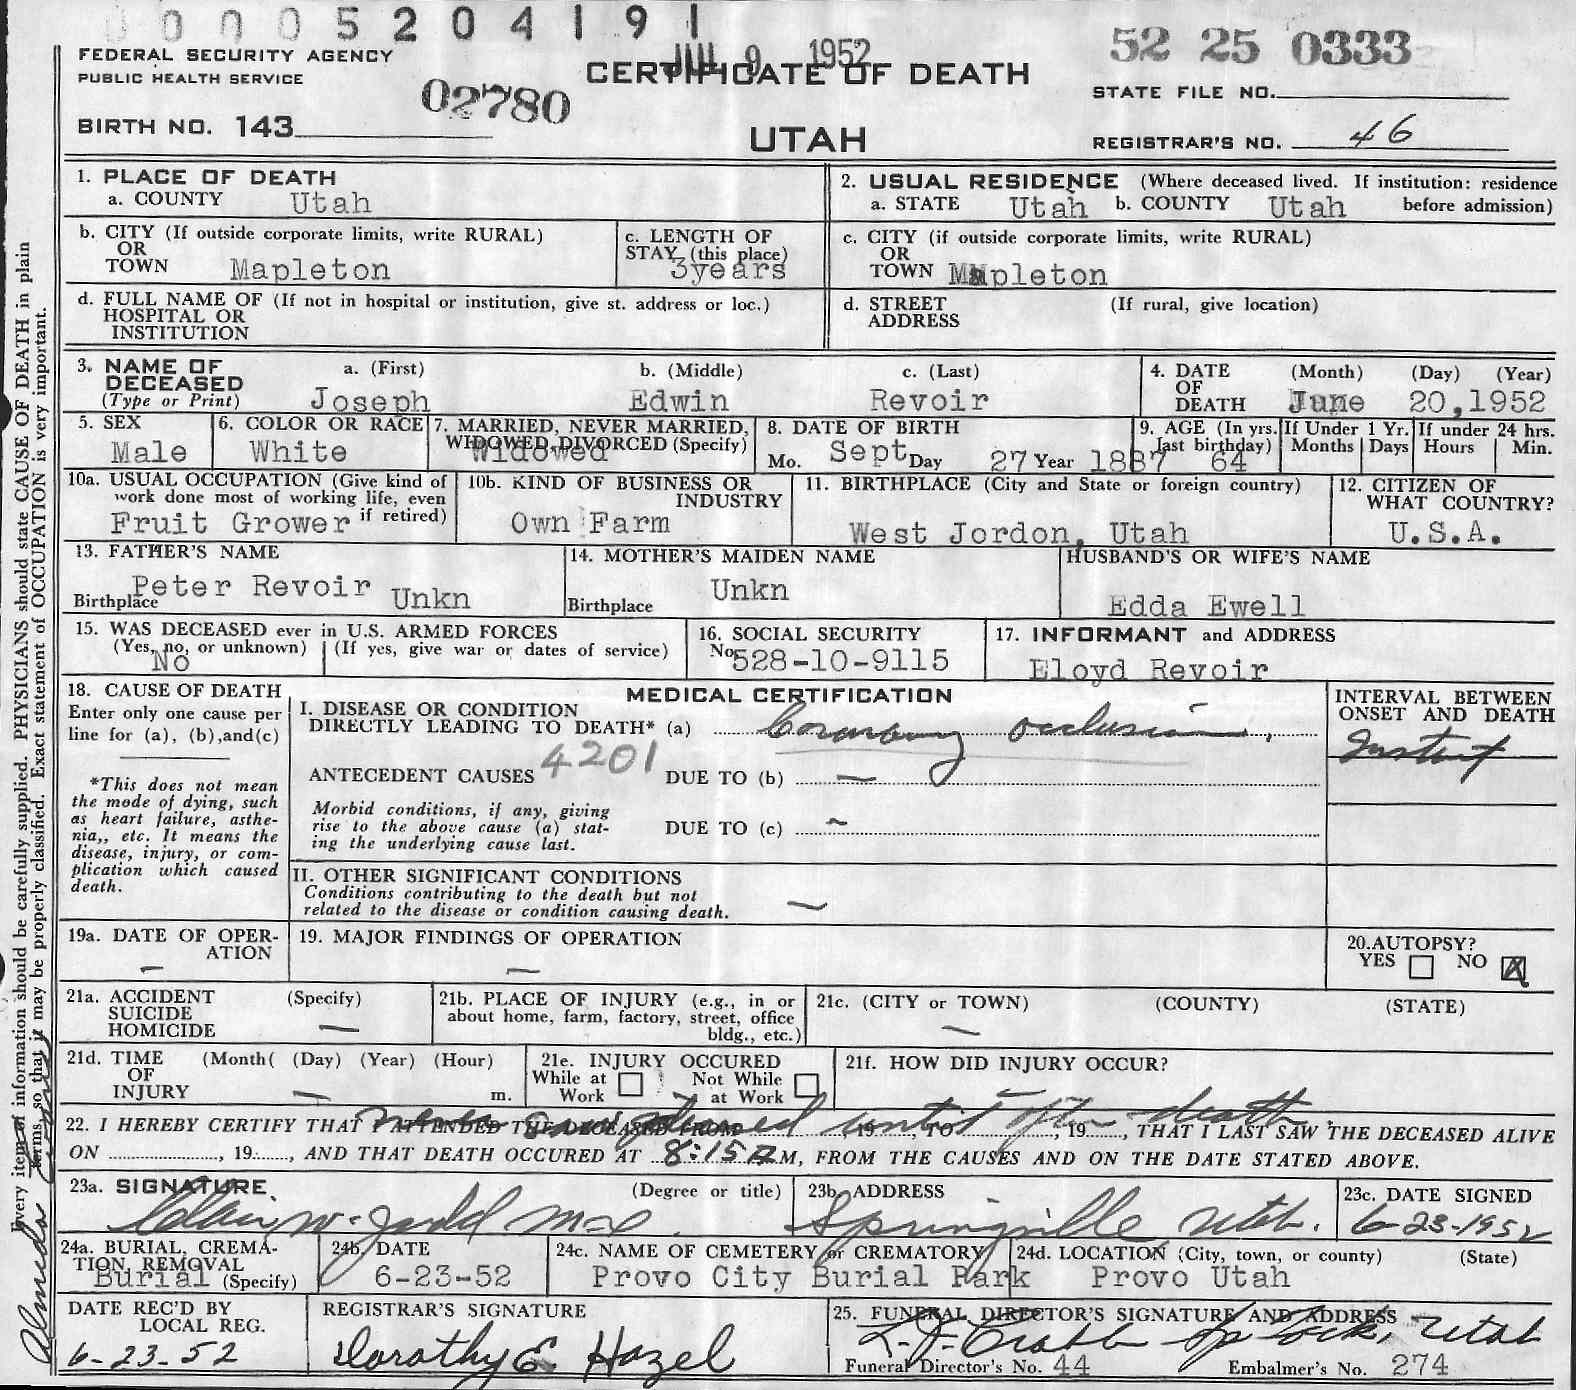 0 0 0 5 2 0 4 1 9 1
JUL 9 1952
52 25 0333
FEDERAL SECURITY AGENCY
PUBLIC HEALTH SERVICE
CERTIFICATE OF DEATH
STATE FILE NO.
02780
BIRTH NO. 143
UTAH
REGISTRAR'S NO. 46
1. PLACE OF DEATH
a. COUNTY Utah
2. USUAL RESIDENCE (Where deceased lived. If institution: residence before admission)
a. STATE Utah b. COUNTY Utah
b. CITY (If outside corporate limits, write RURAL)
OR
TOWN Mapleton
c. LENGTH OF
STAY (this place)
3years
c. CITY (if outside corporate limits, write RURAL)
OR
TOWN Mapleton
d. FULL NAME OF (If not in hospital or institution, give st. address or loc.)
HOSPITAL OR
INSTITUTION
d. STREET (If rural, give location)
ADDRESS
3. NAME OF
DECEASED
(Type or Print)
a. (First) b. (Middle) c. (Last)
Joseph Edwin Revoir
4. DATE (Month) (Day) (Year)
OF
DEATH June 20,1952
5. SEX
Male
6. COLOR OR RACE
White
7. MARRIED, NEVER MARRIED,
WIDOWED, DIVORCED (Specify)
Widowed
8. DATE OF BIRTH
Mo. Sept Day 27 Year 1887
9. AGE (In yrs.
last birthday)
64
If Under 1 Yr.
Months Days
If under 24 hrs.
Hours Min.
10a. USUAL OCCUPATION (Give kind of
work done most of working life, even
if retired)
Fruit Grower
10b. KIND OF BUSINESS OR
INDUSTRY
Own Farm
11. BIRTHPLACE (City and State or foreign country)
West Jordon, Utah
12. CITIZEN OF
WHAT COUNTRY?
U.S.A.
13. FATHER'S NAME
Peter Revoir
Birthplace Unkn
14. MOTHER'S MAIDEN NAME
Unkn
Birthplace
HUSBAND'S OR WIFE'S NAME
Edda Ewell
15. WAS DECEASED ever in U.S. ARMED FORCES
(Yes, no, or unknown) (If yes, give war or dates of service)
No
16. SOCIAL SECURITY
No 528-10-9115
17. INFORMANT and ADDRESS
Eloyd Revoir
18. CAUSE OF DEATH
Enter only one cause per
line for (a), (b),and(c)
*This does not mean
the mode of dying, such
as heart failure, asthe-
nia,, etc. It means the
disease, injury, or com-
plication which caused
death.
MEDICAL CERTIFICATION
I. DISEASE OR CONDITION
DIRECTLY LEADING TO DEATH* (a) Coronary occlusion.
4201
ANTECEDENT CAUSES DUE TO (b) —
Morbid conditions, if any, giving
rise to the above cause (a) stat-
ing the underlying cause last.
DUE TO (c) —
II. OTHER SIGNIFICANT CONDITIONS
Conditions contributing to the death but not
related to the disease or condition causing death. —
INTERVAL BETWEEN
ONSET AND DEATH
Instant
19a. DATE OF OPER-
ATION
—
19. MAJOR FINDINGS OF OPERATION
—
20.AUTOPSY?
YES NO X
21a. ACCIDENT (Specify)
SUICIDE
HOMICIDE —
21b. PLACE OF INJURY (e.g., in or
about home, farm, factory, street, office
bldg., etc.)
21c. (CITY or TOWN) (COUNTY) (STATE)
—
21d. TIME (Month( (Day) (Year) (Hour)
OF
INJURY — m.
21e. INJURY OCCURED
While at Work Not While at Work
21f. HOW DID INJURY OCCUR?
—
never saw deceased until after death
22. I HEREBY CERTIFY THAT I ATTENDED THE DECEASED FROM , 19 , TO , 19 , THAT I LAST SAW THE DECEASED ALIVE
ON , 19 , AND THAT DEATH OCCURED AT 8:15 A M, FROM THE CAUSES AND ON THE DATE STATED ABOVE.
23a. SIGNATURE (Degree or title)
Clair W. Judd MD
23b. ADDRESS
Springville Utah.
23c. DATE SIGNED
6-23-1952
24a. BURIAL, CREMA-
TION, REMOVAL
Burial (Specify)
24b. DATE
6-23-52
24c. NAME OF CEMETERY or CREMATORY
Provo City Burial Park
24d. LOCATION (City, town, or county) (State)
Provo Utah
DATE REC'D BY
LOCAL REG.
6-23-52
REGISTRAR'S SIGNATURE
Dorothy E. Hazel
25. FUNERAL DIRECTOR'S SIGNATURE AND ADDRESS
Utah
Funeral Director's No. 44 Embalmer's No. 274
Every item of information should be carefully supplied. PHYSICIANS should state CAUSE OF DEATH in plain
terms, so that it may be properly classified. Exact statement of OCCUPATION is very important.